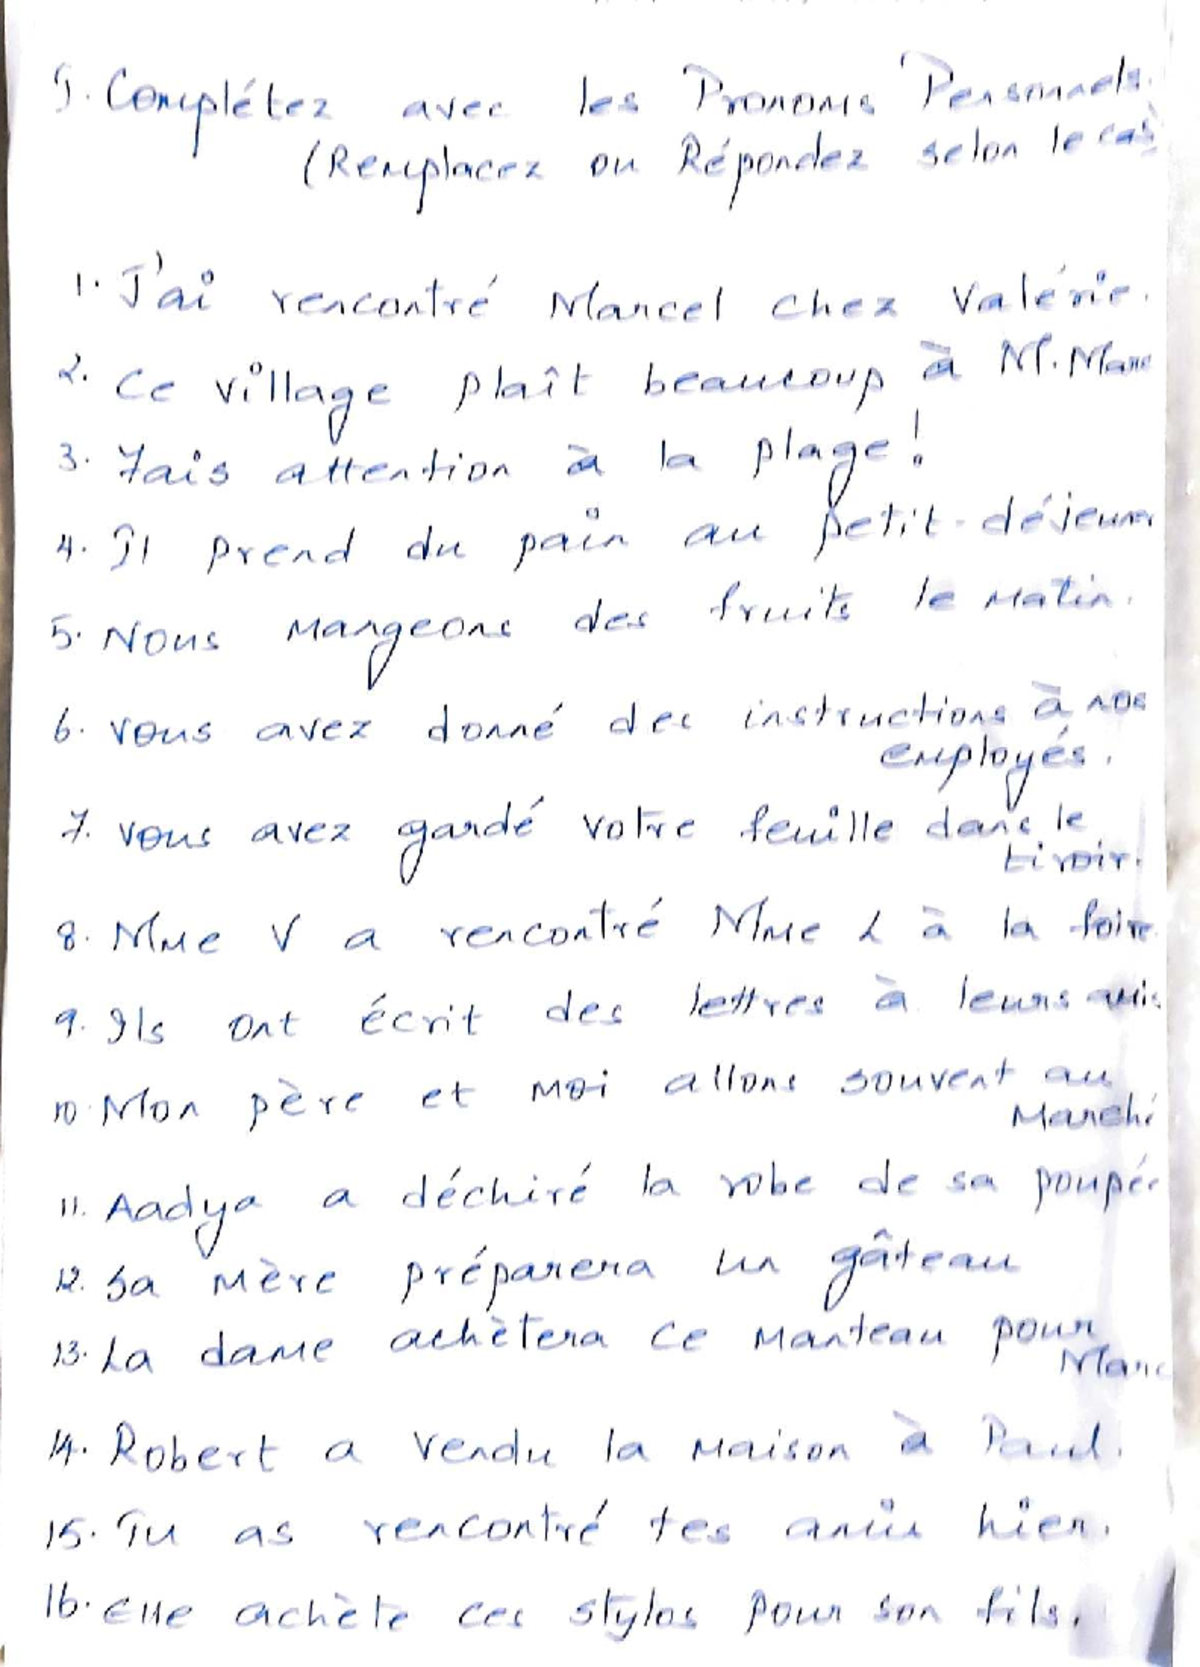 I. Complétez avec les Pronoms Personnels.
(Remplacez ou Répondez selon le cas
1. J'ai rencontré Marcel chez Valérie.
2. Ce village plaît beaucoup à M. Marc
3. Fais attention à la plage!
4. Il prend du pain au petit-déjeuner
5. Nous mangeons des fruits le matin.
6. Vous avez donné des instructions à nos
employés.
7. Vous avez gardé votre feuille dans le
tiroir.
8. Mme V a rencontré Mme L à la foire.
9. Ils ont écrit des lettres à leurs amis
10. Mon père et moi allons souvent au
Marché
11. Aadya a déchiré la robe de sa poupée
12. Sa mère préparera un gâteau
13. La dame achètera ce manteau pour
Marc
14. Robert a vendu la maison à Paul.
15. Tu as rencontré tes amis hier.
16. Elle achète ces stylos pour son fils.